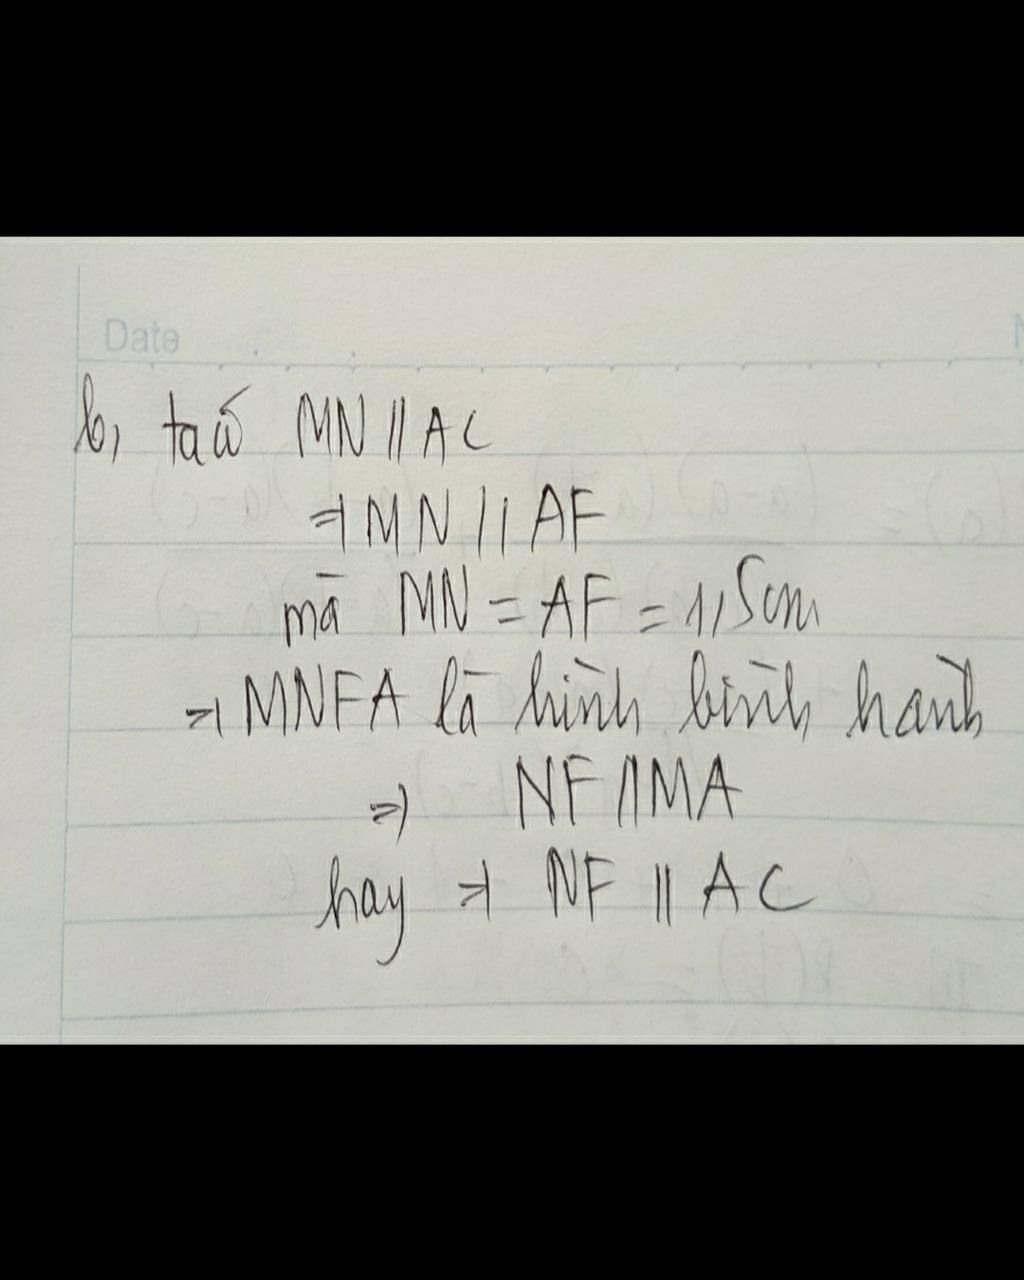 Date
b, ta có MN // AC
⇒ MN // AF
mà MN = AF = 1,5cm
⇒ MNFA là hình bình hành
⇒ NF // MA
hay ⇒ NF // AC